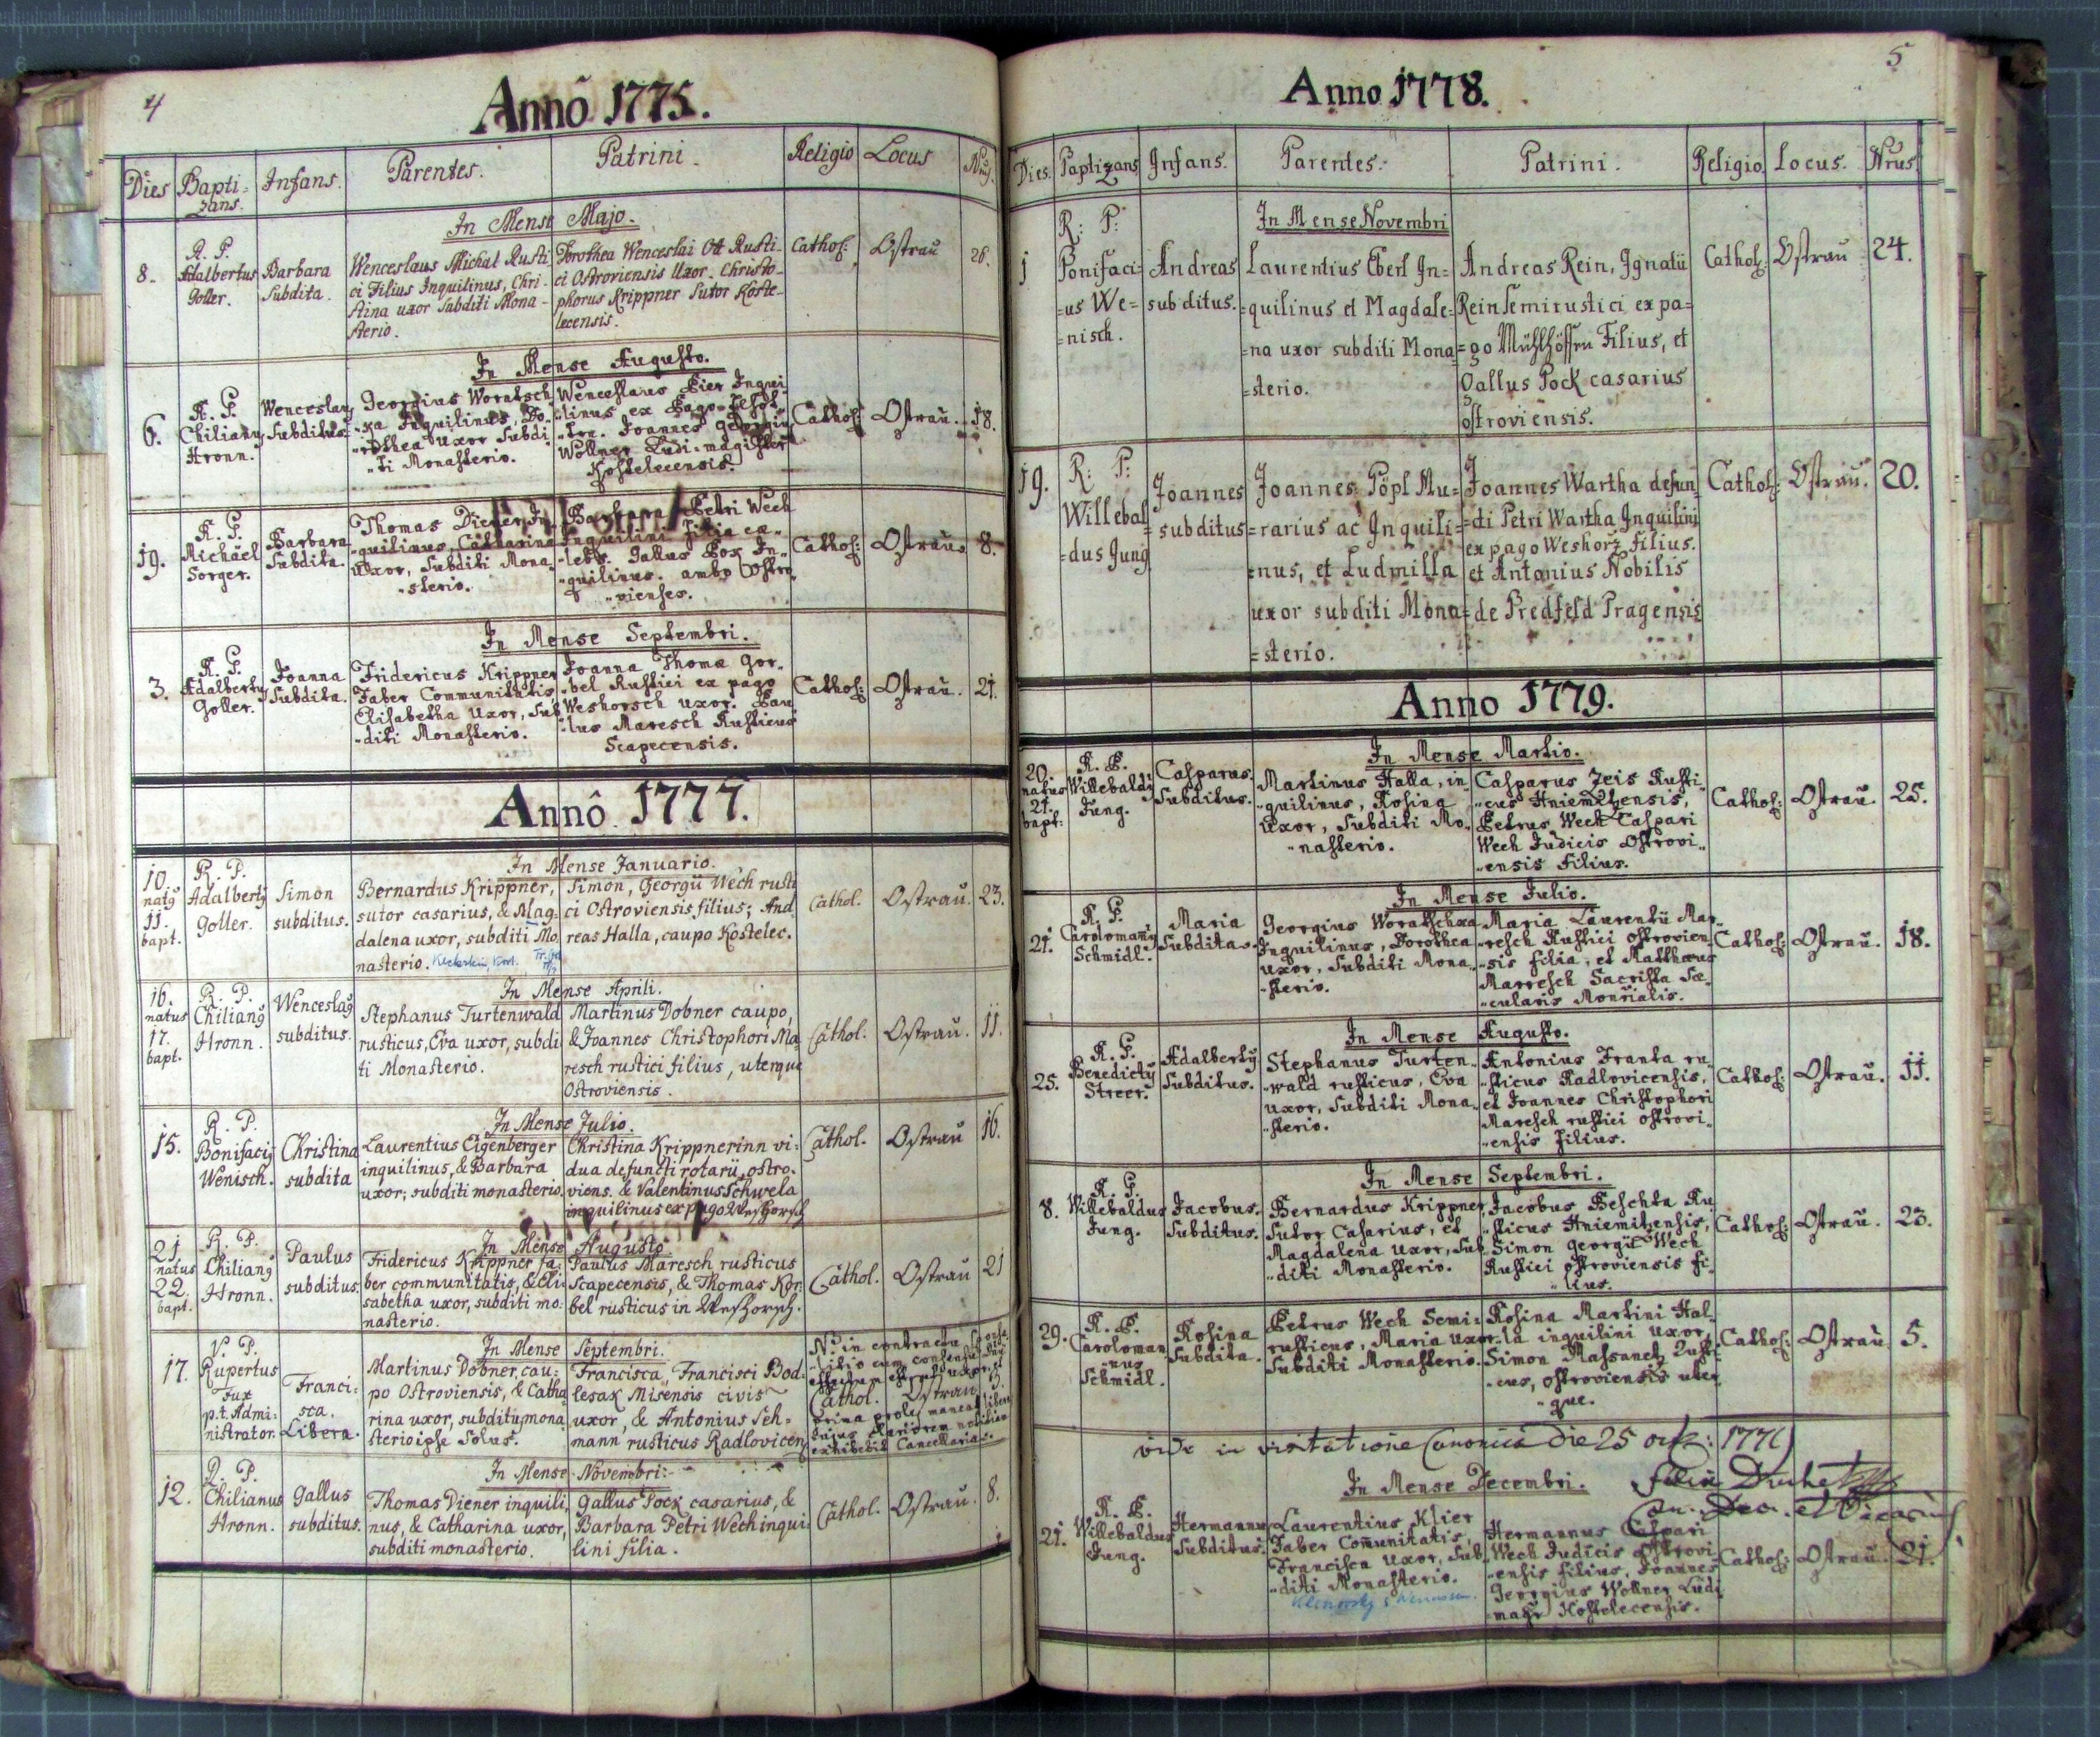 4
Annô 1775.
Dies Bapti=zans. Infans. Parentes. Patrini. Religio Locus Nrus.
In Mense Majo.
8.
R. P.
Adalbertus
Goller.
Barbara
Subdita.
Wenceslaus Michal Rusti-
ci Filius Inquilinus, Chri-
stina uxor Subditi Mona-
sterio.
Dorothea Wenceslai Ott Rusti-
ci Ostroviensis Uxor. Christo-
phorus Krippner Sutor Koste-
lecensis.
Cathol: Ostrau 26.
In Mense Augusto.
6.
R. P.
Chilianus
Hronn.
Wenceslaus
Subditus.
Georgius Woratsch
"ka Inquilinus, Do-
"rothea uxor Subdi
"ti Monasterio.
Wenceslaus Bier Inqui
"linus ex Pago
Joannes Georgius
Wollner Ludi-magister
Kostelecensis.
Cathol: Ostrau. 18.
19.
R. P.
Michael
Sorger.
Barbara
Subdita.
Thomas Diener In
"quilinus Catharina
Uxor, Subditi Mona,
"sterio.
Barbara Petri Wech
Inquilini Filia
Gallus Pox In-
"quilinus. ambo Ostro
"vienses.
Cathol: Ostrau 8.
In Mense Septembri.
3.
R. P.
Adalbertus
Goller.
Joanna
Subdita.
Fridericus Krippner
Faber Communitatis
Elisabetha Uxor, Sub
"diti Monasterio.
Joanna Thomæ Gor-
"bel Rustici ex pago
Weshorsch uxor. Pau
"lus Maresch Rusticus
Scapecensis.
Cathol: Ostrau. 21.
Annô 1777.
In Mense Januario.
10.
natus
11.
bapt.
R. P.
Adalbertus
Goller.
Simon
subditus.
Bernardus Krippner,
sutor casarius, & Mag-
dalena uxor, subditi Mo
nasterio.
Simon, Georgii Wech rusti
ci Ostroviensis filius; And
reas Halla, caupo Kostelec.
Cathol. Ostrau. 23.
In Mense Aprili.
16.
natus
17.
bapt.
R. P.
Chilianus
Hronn.
Wenceslaus
subditus.
Stephanus Turtenwald
rusticus, Eva uxor, subdi
ti Monasterio.
Martinus Dobner caupo,
& Joannes Christophori Ma
resch rustici filius, uterque
Ostroviensis.
Cathol. Ostrau. 11.
In Mense Julio.
15.
R. P.
Bonifacius
Wenisch.
Christina
subdita
Laurentius Eigenberger
inquilinus, & Barbara
uxor; subditi monasterio.
Christina Krippnerinn vi-
dua defuncti rotarii, ostro-
viens. & Valentinus Schwela
inquilinus ex pago Weshorsch
Cathol. Ostrau 16.
In Mense Augusto.
21.
natus
22.
bapt.
R. P.
Chilianus
Hronn.
Paulus
subditus.
Fridericus Krippner fa-
ber communitatis, & Eli
sabetha uxor, subditi mo-
nasterio.
Paulus Maresch rusticus
Scapecensis, & Thomas Kor-
bel rusticus in Weshorsch.
Cathol. Ostrau 21
In Mense Septembri.
17.
V. P.
Rupertus
Fux
p.t. Admi-
nistrator.
Franci-
sca.
Libera.
Martinus Dobner, cau-
po Ostroviensis, & Catha
rina uxor, subditus mona
sterio ipse Solus.
Francisca, Francisci Bod-
lesak Misensis civis
uxor, & Antonius Seh-
mann rusticus Radlovicen
N. in contractu
Cathol. Ostrau
prima proles maneat libera
cujus clariorem notitiam
exhibebit Cancellaria.
In Mense Novembri.
12.
R. P.
Chilianus
Hronn.
Gallus
subditus.
Thomas Diener inquili,
nus, & Catharina uxor,
subditi monasterio.
Gallus Pock casarius, &
Barbara Petri Wech inqui
lini filia.
Cathol. Ostrau. 8.
5
Anno 1778.
Dies. Baptizans Infans. Parentes. Patrini. Religio Locus. Nrus
In Mense Novembri
1
R: P:
Bonifaci=
=us We=
=nisch.
Andreas
subditus.
Laurentius Eberl In=
=quilinus et Magdale=
=na uxor subditi Mona
=sterio.
Andreas Rein, Ignatii
Rein semirustici ex pa=
=go Mühlhöffen Filius, et
Gallus Pock casarius
ostroviensis.
Cathol: Ostrau 24.
19.
R: P:
Willebal
=dus Jung
Joannes
subditus
Joannes Pöpl Mu=
=rarius ac Inquili=
=nus, et Ludmilla
uxor subditi Mona=
=sterio.
Joannes Wartha defun
=di Petri Wartha Inquilini
ex pago Weshorz filius.
et Antonius Nobilis
de Predfeld Pragensis
Cathol: Ostrau. 20.
Anno 1779.
In Mense Martio.
20.
natus
21.
bapt:
R. P.
Willebaldus
Jung.
Casparus.
Subditus.
Martinus Halla, in-
"quilinus, Rosina
Uxor, Subditi Mo-
"nasterio.
Casparus Zeis Rusti-
"cus Hniemitzensis,
Petrus Wech Caspari
Wech Judicis Ostrovi-
"ensis Filius.
Cathol: Ostrau. 25.
In Mense Julio.
21.
R. P.
Carolomanus
Schmidl.
Maria
Subdita.
Georgius Woratschka
Inquilinus, Dorothea
Uxor, Subditi Mona-
"sterio.
Maria Laurentii Mar-
"resch Rustici ostrovien-
"sis filia, et Matthæus
Marresch Sacrista Sæ-
"cularis
Cathol: Ostrau. 18.
In Mense Augusto.
25.
R. P.
Benedictus
Streer.
Adalbertus
Subditus.
Stephanus Turten-
"wald rusticus, Eva
uxor, Subditi Mona-
"sterio.
Antonius Franta ru-
"sticus Radlovicensis,
et Joannes Christophori
Maresch rustici ostrovi-
"ensis Filius.
Cathol: Ostrau. 11.
In Mense Septembri.
8.
R. P.
Willebaldus
Jung.
Jacobus.
Subditus.
Bernardus Krippner
Sutor Casarius, et
Magdalena uxor, Sub
"diti Monasterio.
Jacobus Peschta Ru-
"sticus Hniemitzensis,
Simon Georgii Wech
Rustici ostroviensis fi-
"lius.
Cathol: Ostrau. 23.
29.
R. P.
Caroloman
"nus
Schmidl.
Rosina
Subdita.
Petrus Wech Semi-
rusticus, Maria uxor
Subditi Monasterio.
Rosina Martini Hal-
"la inquilini uxor,
Simon Massanetz Rusti
"cus, ostroviensis uter
"que.
Cathol: Ostrau 5.
vidi in visitatione Canonica die 25
In Mense Decembri.
21.
R. P.
Willebaldus
Jung.
Hermannus
Subditus.
Laurentius Klier
Faber Communitatis,
Francisca Uxor, Sub
"diti Monasterio.
Hermannus Caspari
Wech Judicis Ostrovi-
"ensis filius, Joannes
Georgius Wollner Ludi
=magr Kostelecensis.
Cathol: Ostrau. 21.